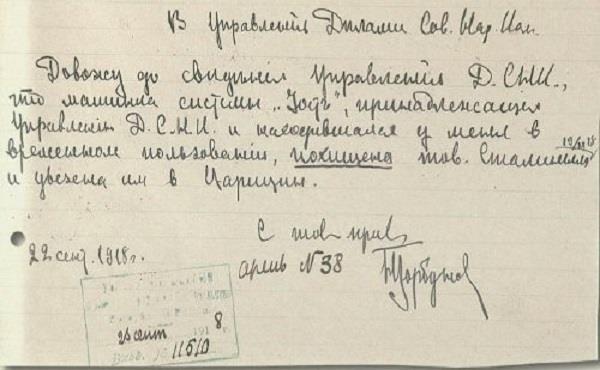 В Управленiя Дѣлами Сов. Нар. Ком.
Довожу до свѣдѣнiя Управленiя Д. С.Н.К.,
что машинка системы „Iостъ", принадлежащая
Управленiю Д. С.Н.К. и находившаяся у меня в
временном пользованiи, похищена тов. Сталиным
и увезена им в Царицын.
С тов. прив.
22 сент. 1918 г.
архив N 38
26 сент 1918 г.
11510